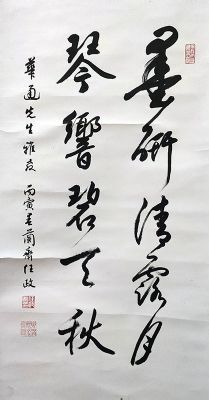 墨研清露月
琴響碧天秋
華通先生雅友 丙寅春蘭齋汪政